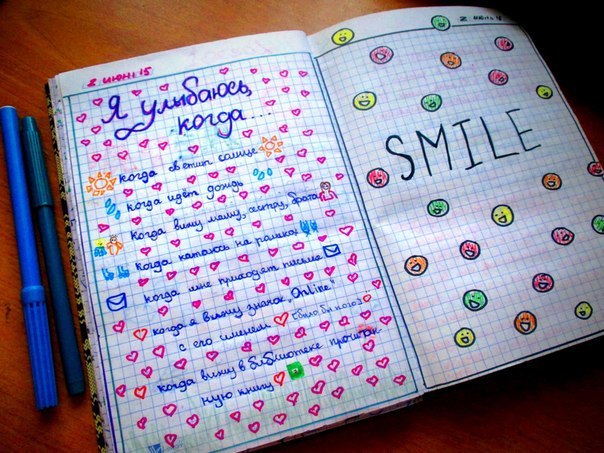 2 июнь 15
Я улыбаюсь,
когда...
когда светит солнце
когда идёт дождь
когда вижу маму, сестру, брата
когда катаюсь на роликах
когда мне приходят письма
когда я вижу значок „Online“
с его именем
когда вижу в библиотеке прочитан-
ную книгу
2 июнь 15
SMILE